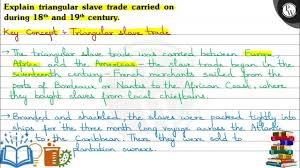 Explain triangular slave trade carried on
during 18th and 19th century.
Key Concept :- Triangular slave trade
→ The triangular slave trade was carried between Europe,
Africa and the Americas - the slave trade began in the
seventeenth century - French merchants sailed from the
ports of Bordeaux or Nantes to the African Coast, where
they bought slaves from local chieftains.
→ Branded and shackled, the slaves were packed tightly into
ships for the three month long voyage across the Atlantic
to the Caribbean. There they were sold to
plantation owners.